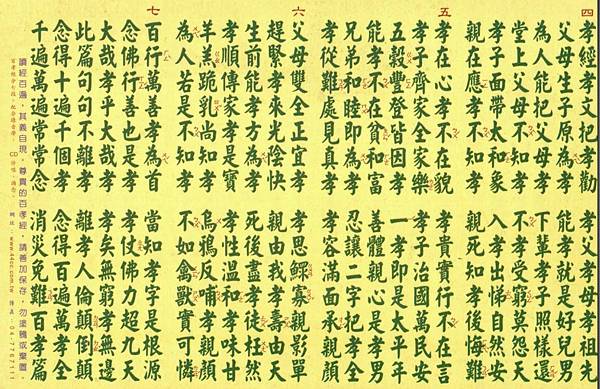 四
孝經孝文把孝勸 孝父孝母孝祖先
父母生子原為孝 能孝就是好兒男
為人能把父母孝 下輩孝子照樣還
堂上父母不知孝 不孝受窮莫怨天
孝子面帶太和象 入孝出悌自然安
親在應孝不知孝 親死知孝後悔難
五
孝在心孝不在貌 孝貴實行不在言
孝子齊家全家樂 孝子治國萬民安
五穀豐登皆因孝 一孝即是太平年
能孝不在貧和富 善體親心是孝男
兄弟和睦即為孝 忍讓二字把孝全
孝從難處見真孝 孝容滿面承親顏
六
父母雙全正宜孝 孝思鰥寡親影單
趕緊孝來光陰快 親由我孝壽由天
生前能孝方為孝 死後盡孝徒枉然
孝順傳家孝是寶 孝性溫和孝味甘
羊羔跪乳尚知孝 烏鴉反哺孝親顏
為人若是不知孝 不如禽獸實可憐
七
百行萬善孝為首 當知孝字是根源
念佛行善也是孝 孝仗佛力超九天
大哉孝乎大哉孝 孝矣無窮孝無邊
此篇句句不離孝 離孝人倫顛倒顛
念得十遍千個孝 念得百遍萬孝全
千遍萬遍常常念 消災免難百孝篇
讀經百遍，其義自現，尊貴的百孝經，請善加保存，勿塗鴉或棄置。